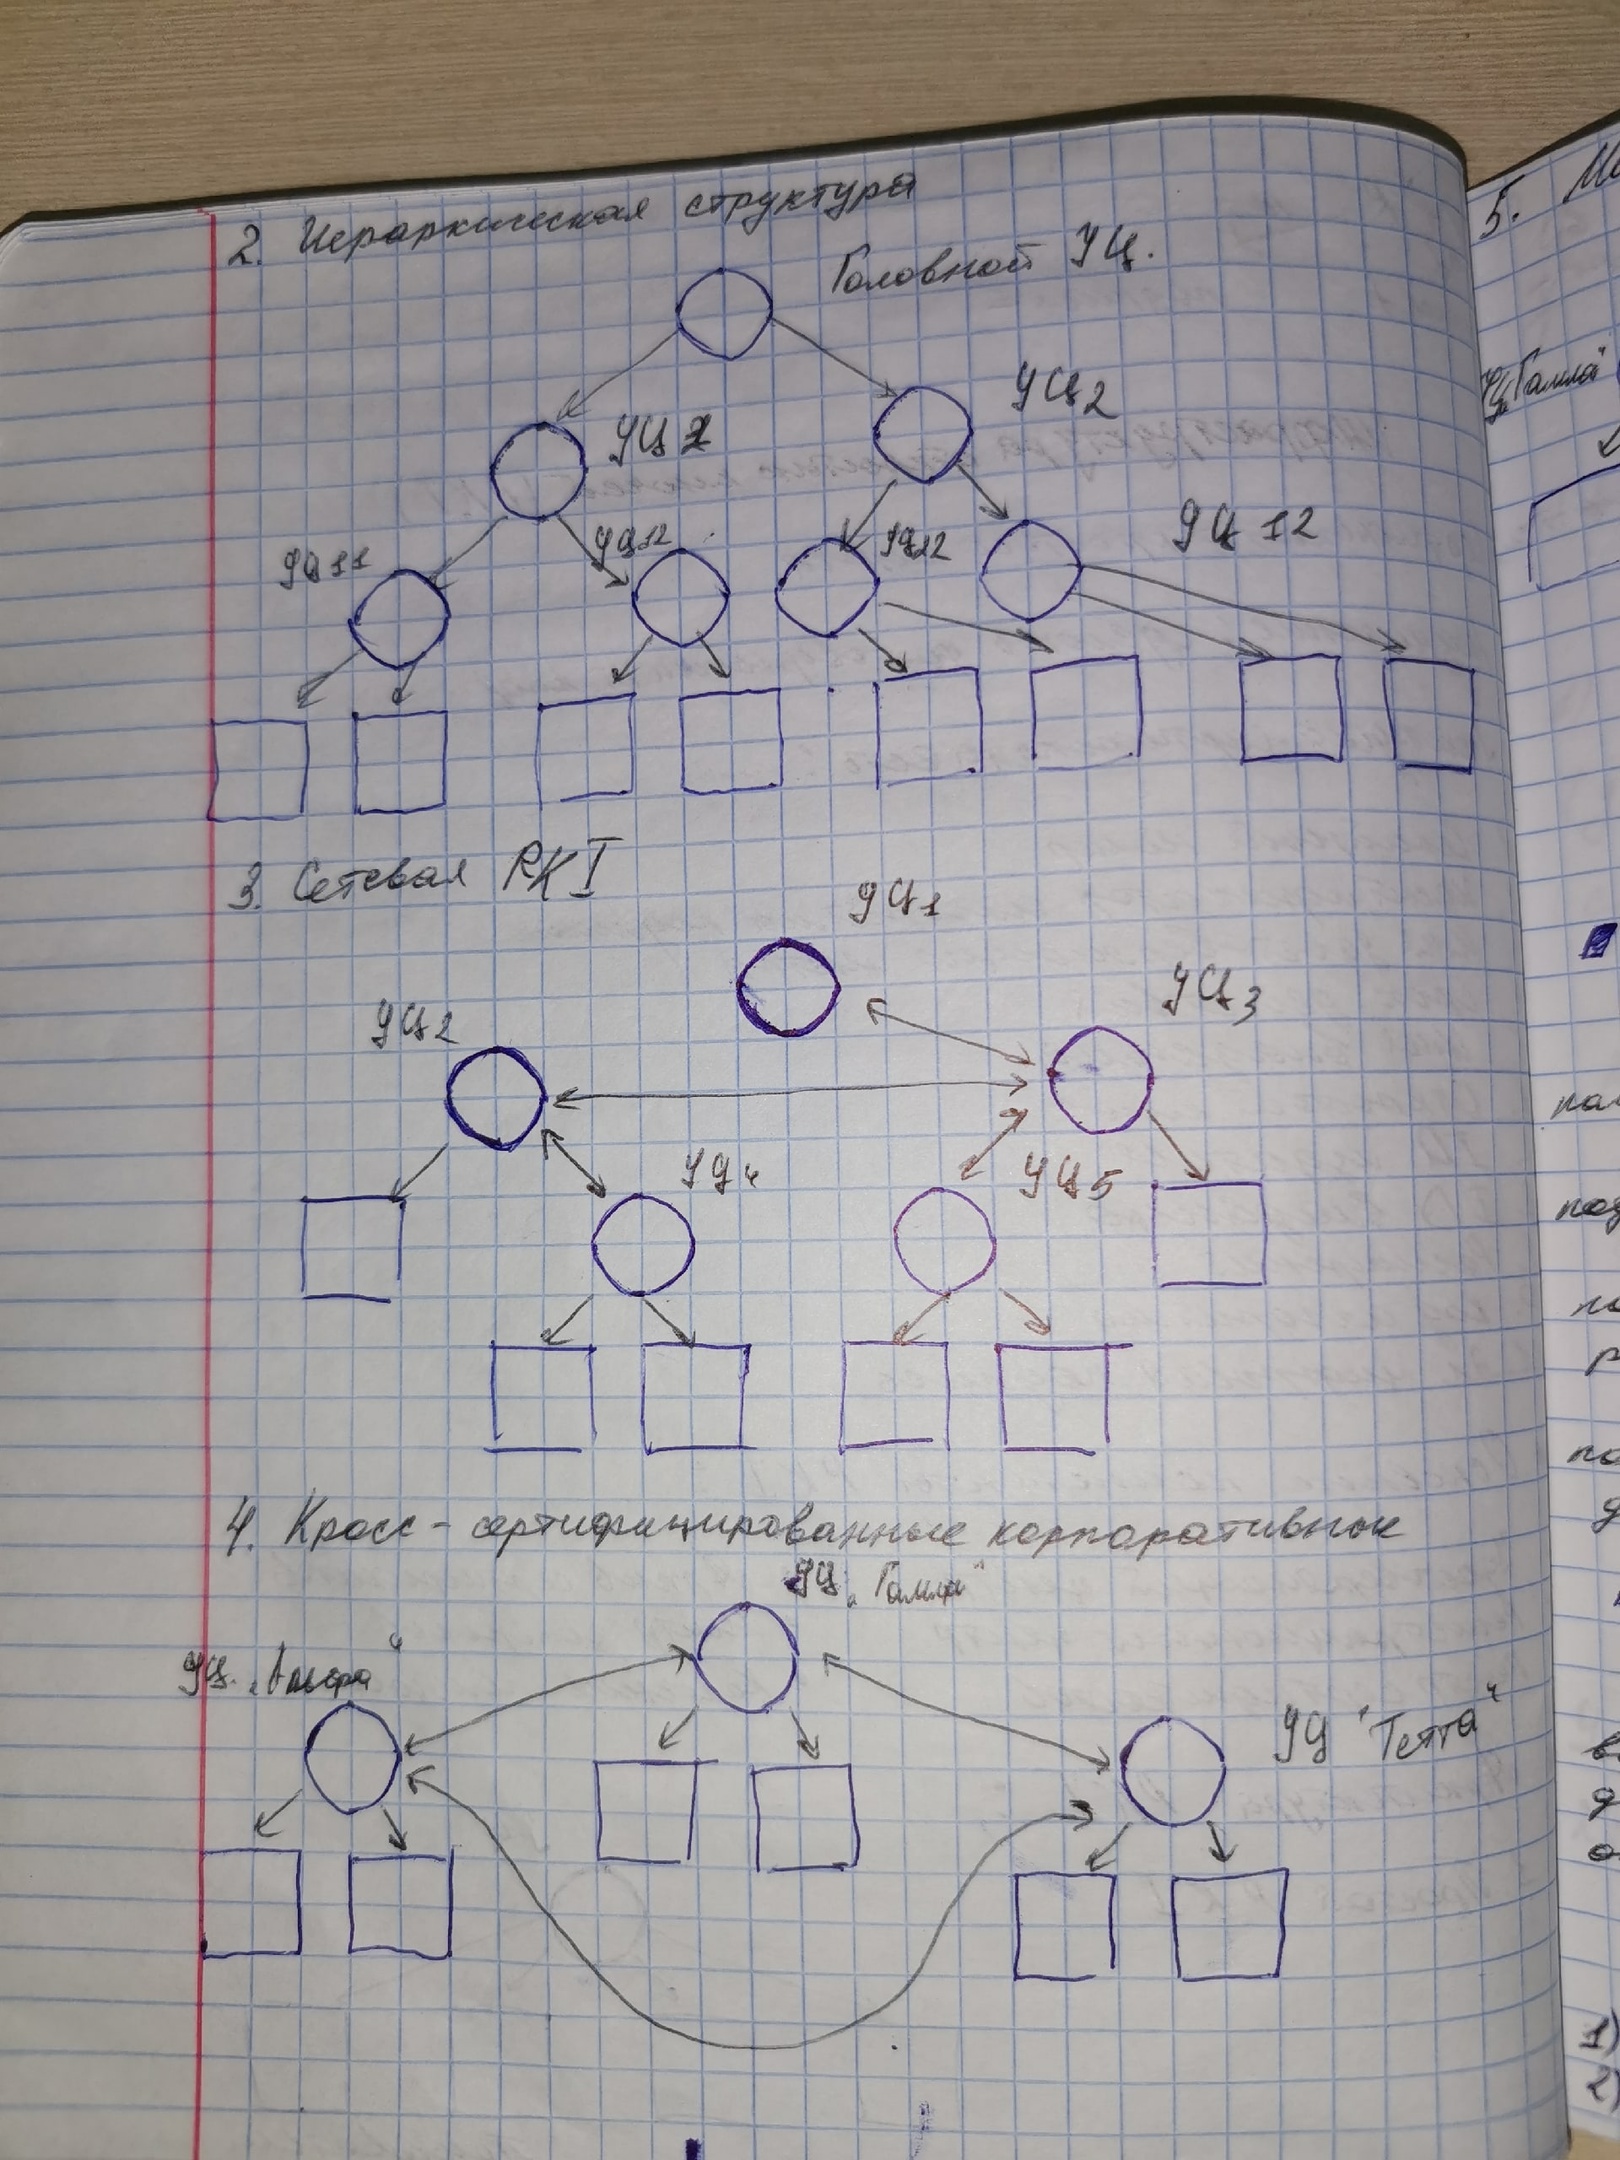 2. Иерархическая структура
Головной УЦ.
УЦ 1
УЦ2
УЦ11
УЦ12
УЦ12
УЦ 12
3. Сетевая PKI
УЦ1
УЦ2
УЦ3
УЦ4
УЦ5
4. Кросс-сертифицированные корпоративные
УЦ „Гамма"
УЦ. „Альфа"
УЦ "Тетта"
5.
УЦ„Гамма"
1)
2)